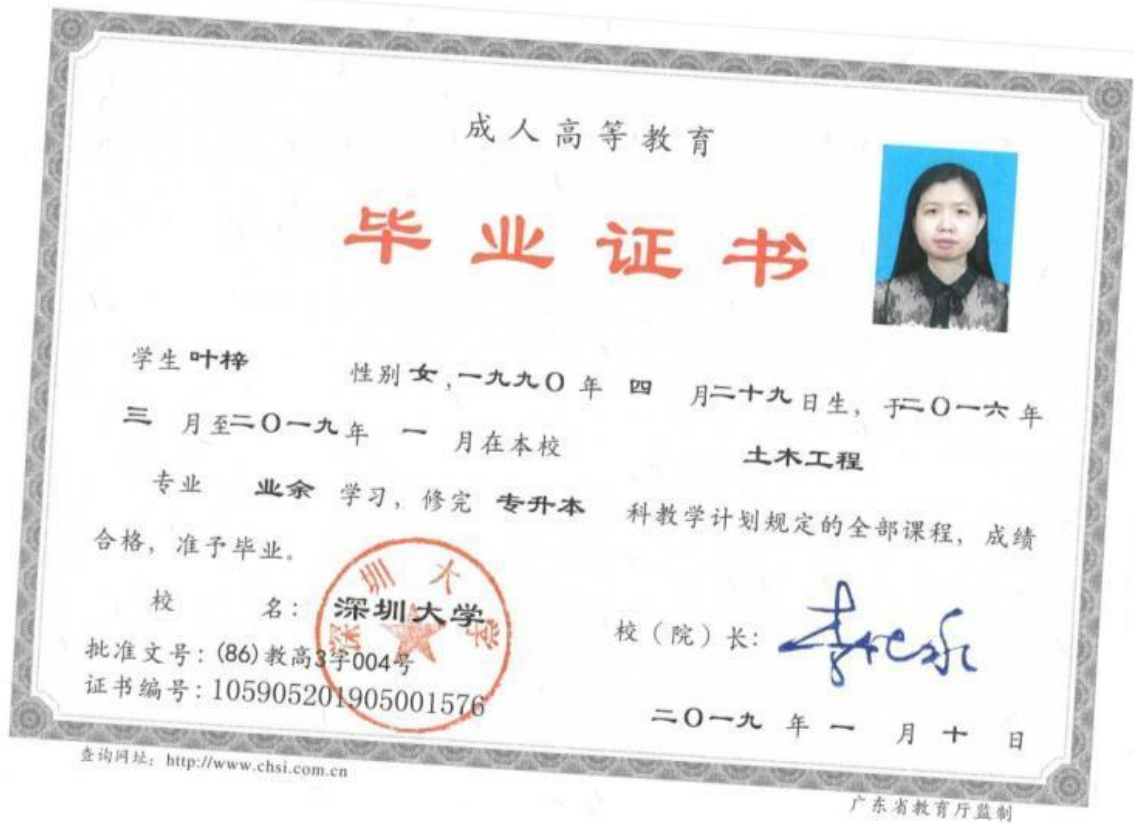 成人高等教育
毕业证书
学生 叶梓 性别 女，一九九〇 年 四 月二十九日生，于二〇一六 年
三 月至二〇一九年 一 月在本校 土木工程
专业 业余 学习，修完 专升本 科教学计划规定的全部课程，成绩
合格，准予毕业。
校 名：深圳大学
深圳大学
校（院）长：
批准文号：(86)教高3字004号
证书编号：105905201905001576
二〇一九 年 一 月 十 日
查询网址：http://www.chsi.com.cn
广东省教育厅监制